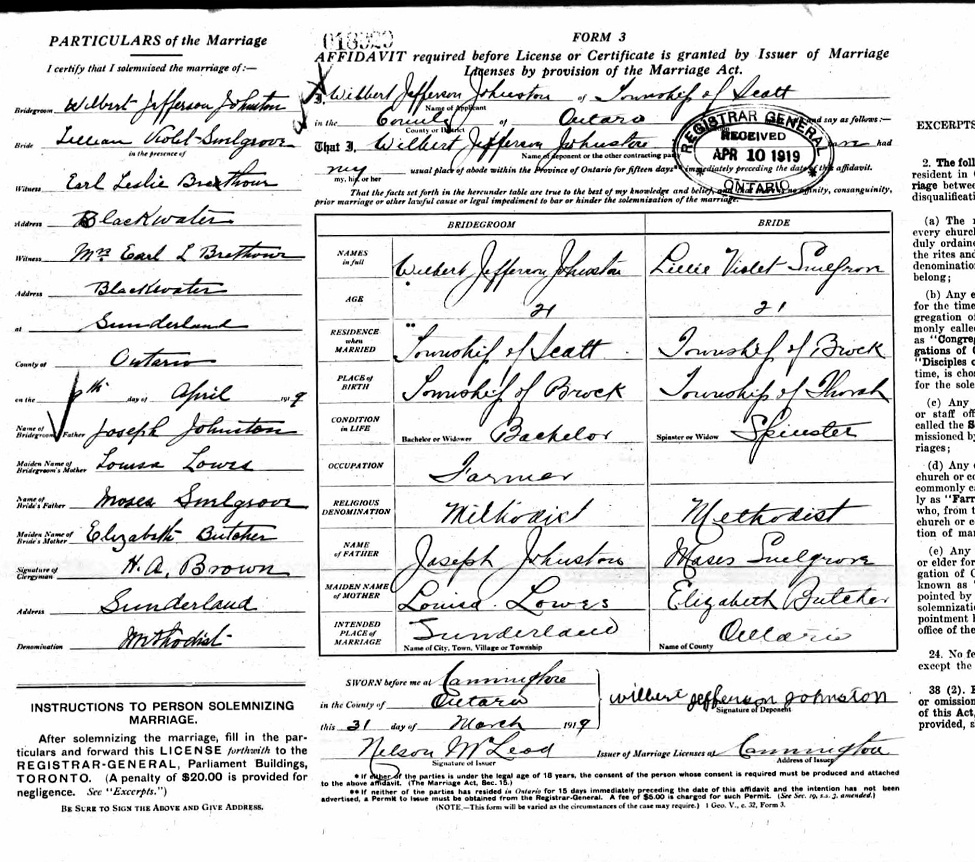 PARTICULARS of the Marriage
I certify that I solemnized the marriage of:—
Bridegroom Wilbert Jefferson Johnston
Bride Lillian Violet Smelgrove
in the presence of
Witness Earl Leslie Brethour
Address Blackwater
Witness Mrs Earl L Brethour
Address Blackwater
at Sunderland
County of Ontario
on the th day of April 1919
Name of Bridegroom's Father Joseph Johnston
Maiden Name of Bridegroom's Mother Louisa Lowes
Name of Bride's Father Moses Smelgrove
Maiden Name of Bride's Mother Elizabeth Butcher
Signature of Clergyman H. A. Brown
Address Sunderland
Denomination Methodist
INSTRUCTIONS TO PERSON SOLEMNIZING
MARRIAGE.
After solemnizing the marriage, fill in the par-
ticulars and forward this LICENSE forthwith to the
REGISTRAR-GENERAL, Parliament Buildings,
TORONTO. (A penalty of $20.00 is provided for
negligence. See "Excerpts.")
BE SURE TO SIGN THE ABOVE AND GIVE ADDRESS.
FORM 3
AFFIDAVIT required before License or Certificate is granted by Issuer of Marriage
Licenses by provision of the Marriage Act.
I, Wilbert Jefferson Johnston of Township of Scott
Name of Applicant
in the County of Ontario and say as follows:—
County or District
That I, Wilbert Jefferson Johnston had
Name of deponent or the other contracting party
my usual place of abode within the Province of Ontario for fifteen days** immediately preceding the date of this affidavit.
my, his, or her
That the facts set forth in the hereunder table are true to the best of my knowledge and belief, and affinity, consanguinity,
prior marriage or other lawful cause or legal impediment to bar or hinder the solemnization of the marriage.
REGISTRAR GENERAL
RECEIVED
APR 10 1919
ONTARIO
BRIDEGROOM BRIDE
NAMES in full Wilbert Jefferson Johnston Lillie Violet Smelgrove
AGE 21 21
RESIDENCE when MARRIED ** Township of Scott Township of Brock
PLACE of BIRTH Township of Brock Township of Thorah
CONDITION IN LIFE Bachelor or Widower Bachelor Spinster or Widow Spinster
OCCUPATION Farmer
RELIGIOUS DENOMINATION Methodist Methodist
NAME OF FATHER Joseph Johnston Moses Smelgrove
MAIDEN NAME OF MOTHER Louisa Lowes Elizabeth Butcher
INTENDED PLACE OF MARRIAGE Sunderland Ontario
Name of City, Town, Village or Township Name of County
SWORN before me at Cannington
in the County of Ontario
this 31 day of March 1919
wilbert jefferson johnston
Signature of Deponent
Nelson McLeod Issuer of Marriage Licenses at Cannington
Signature of Issuer Address of Issuer
* If either of the parties is under the legal age of 18 years, the consent of the person whose consent is required must be produced and attached
to the above affidavit. (The Marriage Act, Sec. 15.)
** If neither of the parties has resided in Ontario for 15 days immediately preceding the date of this affidavit and the intention has not been
advertised, a Permit to issue must be obtained from the Registrar-General. A fee of $5.00 is charged for such Permit. (See Sec. 19, s.s. 3, amended.)
(NOTE.—This form will be varied as the circumstances of the case may require.) 1 Geo. V., c. 32, Form 3.
EXCERPTS
2. The foll
resident in
riage betwe
disqualificati
(a) The
every church
duly ordaine
the rites and
denomination
belong;
(b) Any e
for the time
gregation of
monly called
as "Congreg
gations of
"Disciples o
time, is chos
for the sole
(c) Any
or staff off
called the S
missioned by
riages;
(d) Any
church or co
commonly ca
ly as "Farr
who, from t
church or c
tion of mar
(e) Any
or elder for
gation of C
known as
pointed by
solemnizatio
pointment
office of the
24. No fe
except the
38 (2).
or omission
of this Act,
provided, s